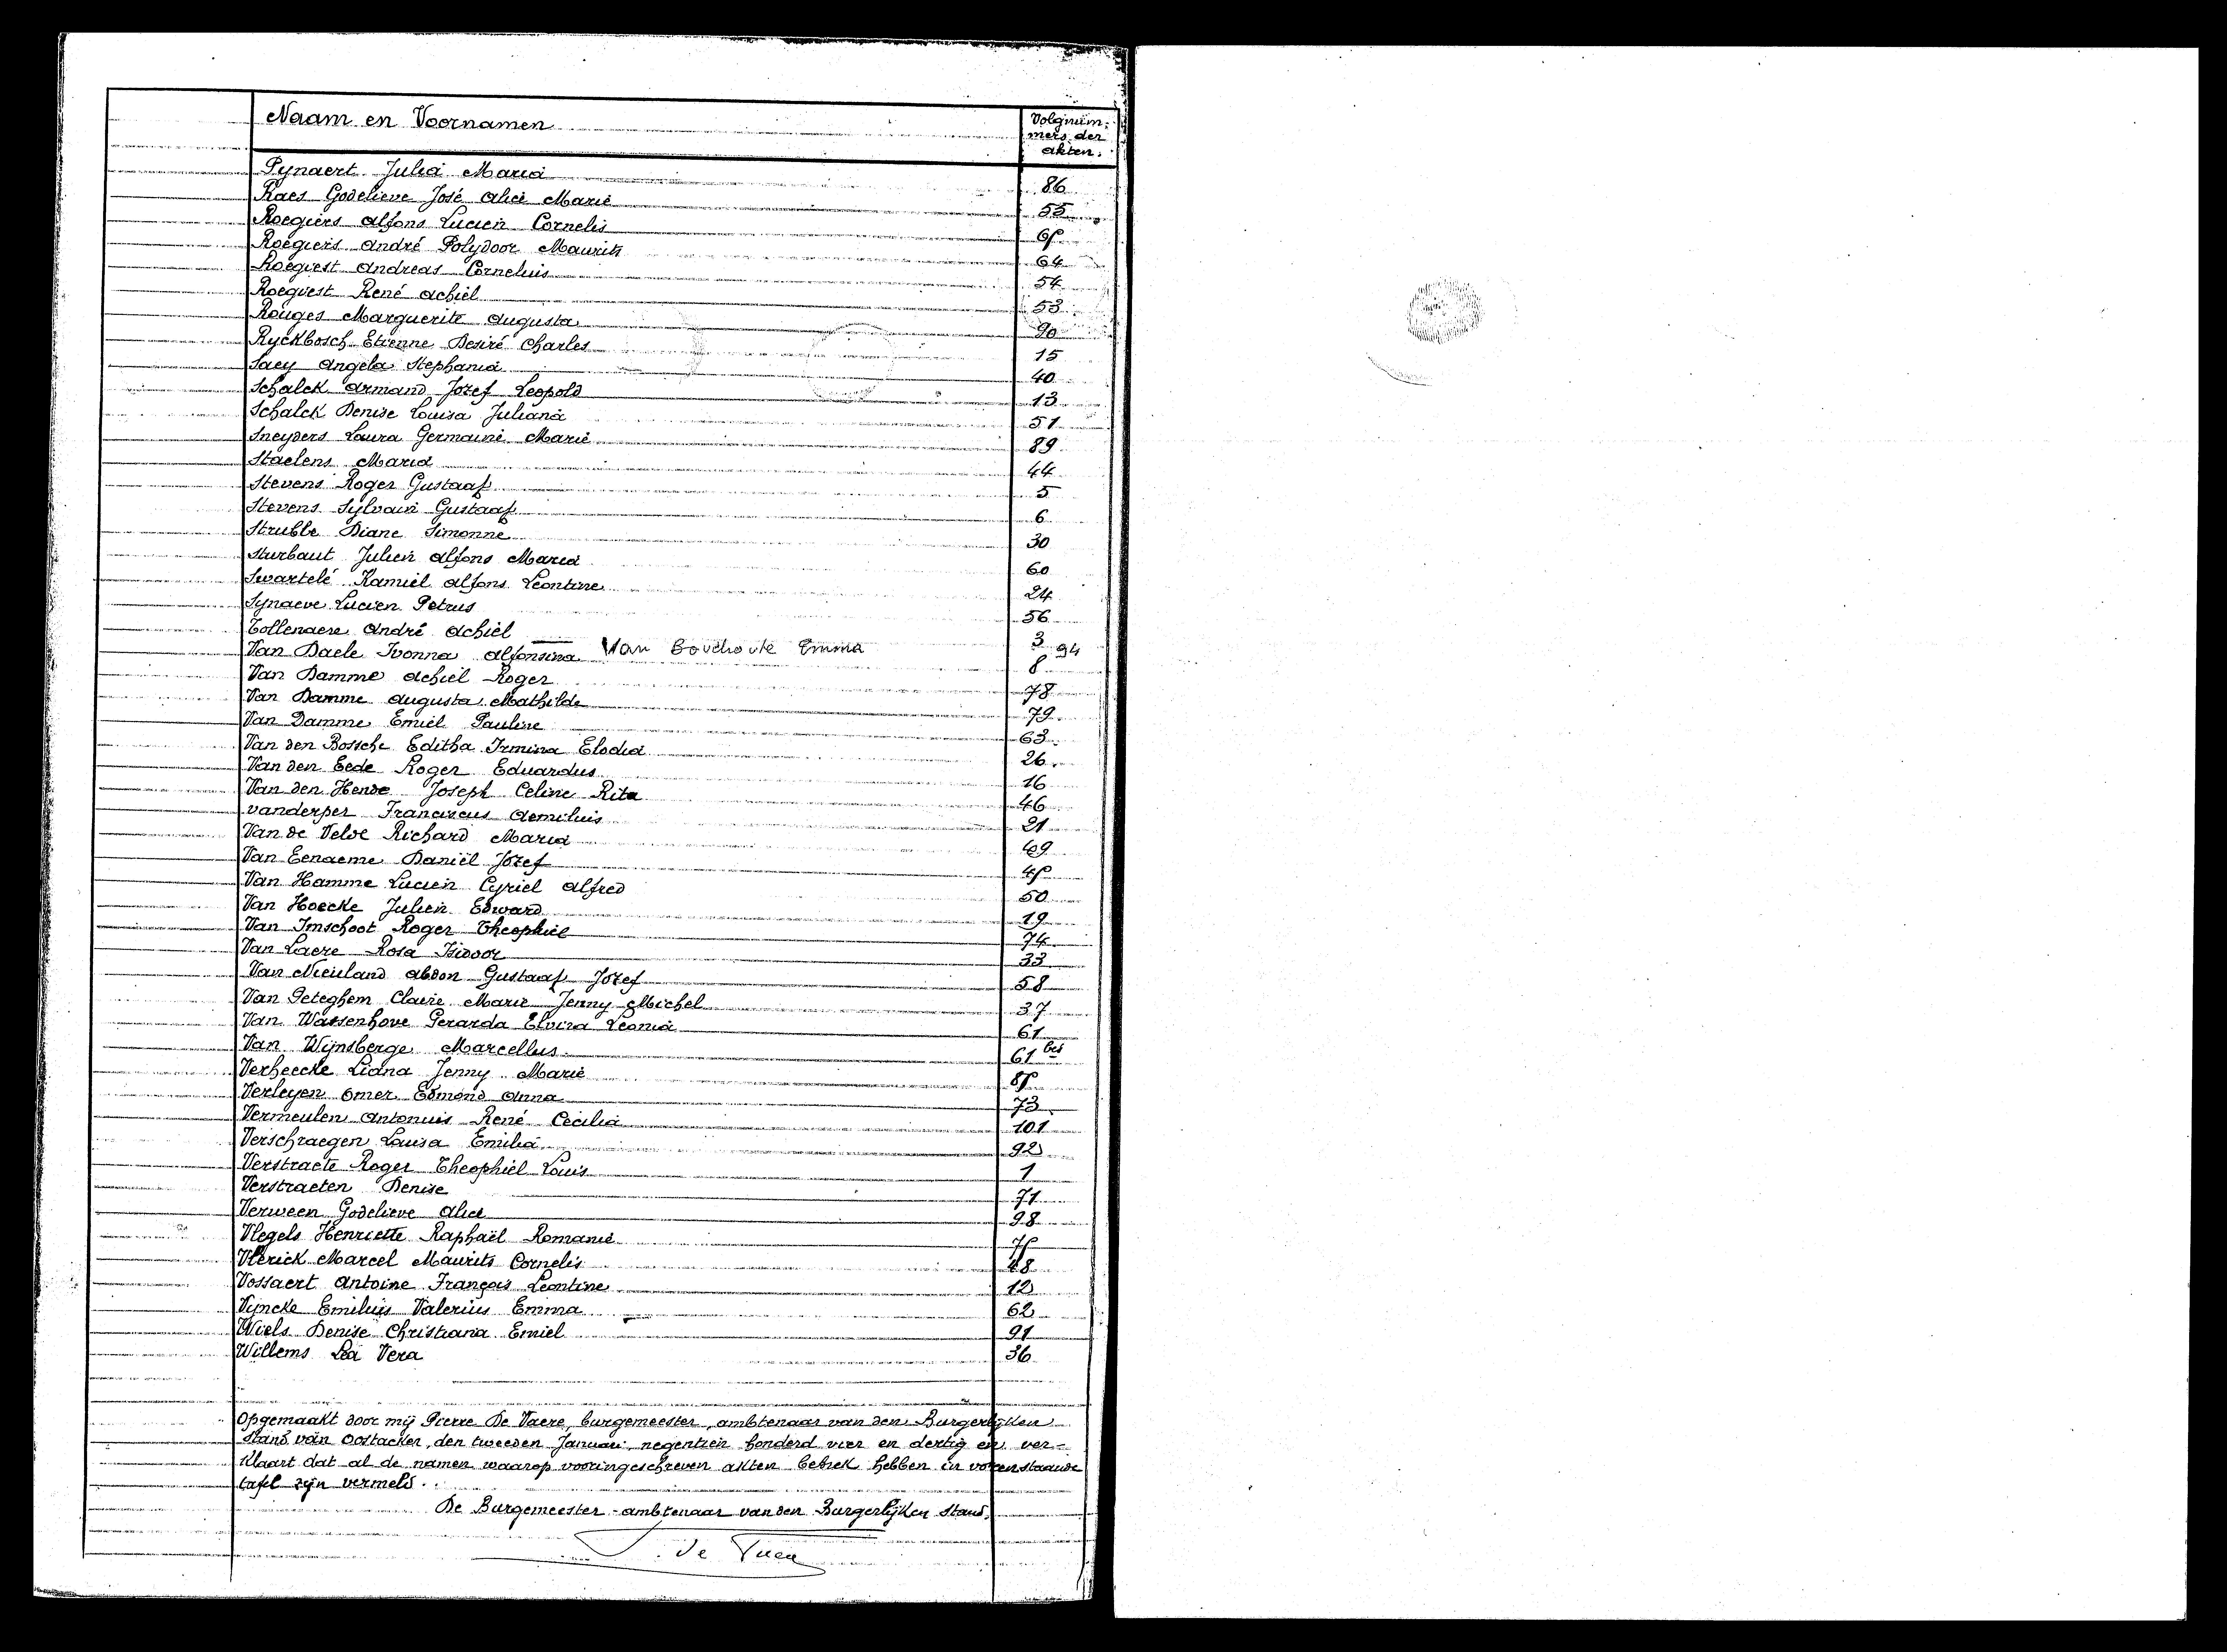 Naam en Voornamen
Volgnum-
mers der
akten.
Pynaert Julia Maria 86
Raes Godelieve José Alice Marie 55
Roegiers Alfons Lucien Cornelis 67
Roegiers André Polydoor Maurits 64
Roegiest Andreas Cornelius 54
Roegiest René Achiel 53
Rouges Marguerite Augusta 90
Ryckbosch Etienne Desiré Charles 15
Saey Angela Stephania 40
Schalck Armand Jozef Leopold 13
Schalck Denise Louisa Juliana 51
Sneyders Laura Germaine Marie 89
Staelens Maria 44
Stevens Roger Gustaaf 5
Stevens Sylvain Gustaaf 6
Strubbe Diane Simonne 30
Sturbaut Julien Alfons Maria 60
Swartelé Kamiel Alfons Leontine 24
Synaeve Lucien Petrus 56
Tollenaere André Achiel 3
Van Bouchoute Emma 94
Van Daele Ivonna Alfonsina 8
Van Damme Achiel Roger 78
Van Damme Augusta Mathilde 79
Van Damme Emiel Pauline 63
Van den Bossche Editha Irmina Elodia 26
Van den Eede Roger Eduardus 16
Van den Hende Joseph Celine Rita 46
Vanderper Franciscus Aemilius 21
Van de Velde Richard Maria 49
Van Eenaeme Daniël Jozef 47
Van Hamme Lucien Cyriel Alfred 50
Van Hoecke Julien Edward 19
Van Imschoot Roger Theophiel 74
Van Laere Rosa Isidoor 33
Van Nieuland Abdon Gustaaf Jozef 58
Van Peteghem Claire Marie Jenny Michel 37
Van Wassenhove Gerarda Elvira Leonia 61
Van Wijnsberge Marcellus 61 bis
Verheecke Liana Jenny Marie 87
Verleyen Omer Edmond Anna 73
Vermeulen Antonius René Cecilia 101
Verschraegen Louisa Emilia 92
Verstraete Roger Theophiel Louis 1
Verstraeten Denise 71
Verween Godelieve Alice 98
Vlegels Henriette Raphaël Romanie 77
Vlerick Marcel Maurits Cornelis 48
Vossaert Antoine François Leontine 12
Vyncke Emilius Valerius Emma 62
Wiels Denise Christiana Emiel 91
Willems Lea Vera 36
Opgemaakt door mij Pierre De Vaere, burgemeester, ambtenaar van den Burgerlijken
stand van Oostacker, den tweeden Januari negentien honderd vier en dertig en ver-
klaart dat al de namen waarop vooringeschreven akten betrek hebben in vorenstaande
tafel zijn vermeld.
De Burgemeester - ambtenaar van den Burgerlijken Stand,